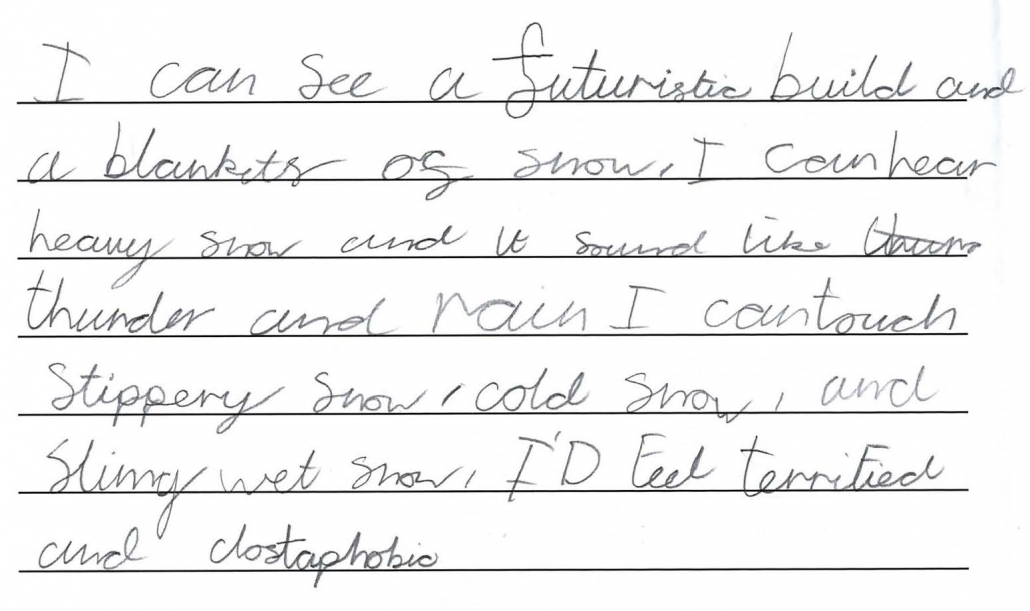 I can see a futuristic build and
a blankets of snow, I can hear
heavy snow and it sound like thun
thunder and rain I can touch
Slippery snow, cold snow, and
Slimy wet snow, I'D Feel terrified
and clostaphobic